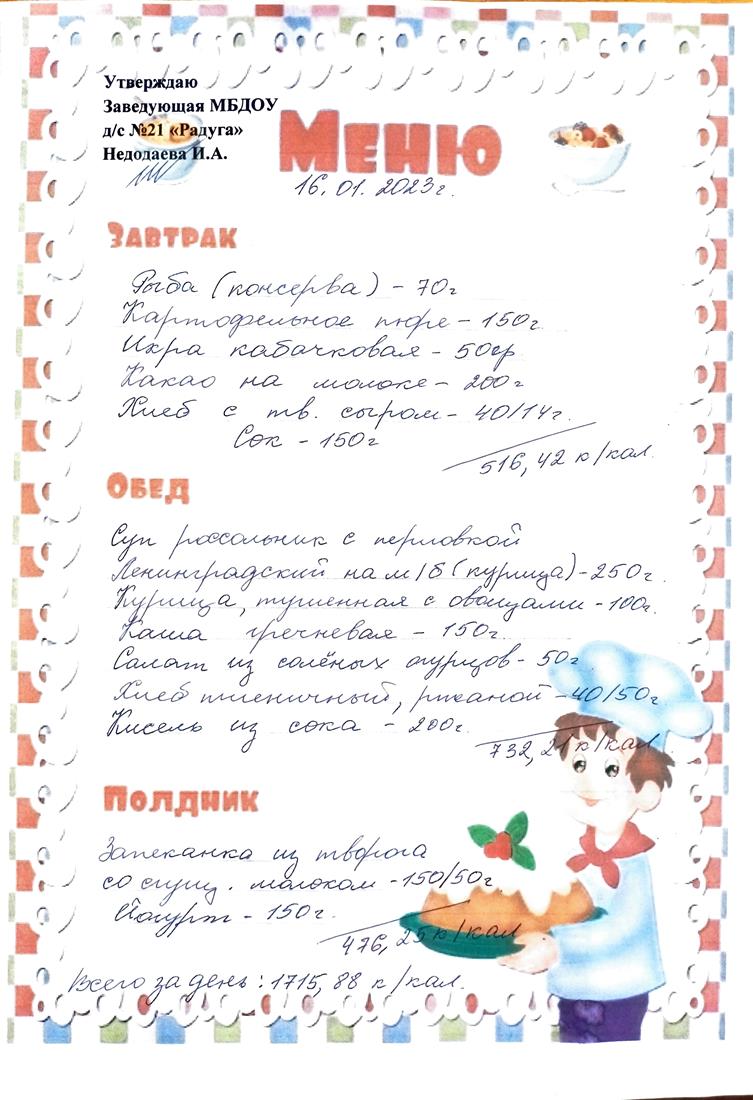 Утверждаю
Заведующая МБДОУ
д/с №21 «Радуга»
Недодаева И.А.
Меню
16.01.2023г.
Завтрак
Рыба (консерва) - 70г
Картофельное пюре - 150г
Икра кабачковая - 50гр
Какао на молоке - 200г
Хлеб с тв. сыром - 40/14г.
Сок - 150г
516,42 к/кал
Обед
Суп россольник с перловкой
Ленинградский на м/б (курица) - 250г.
Курица, тушенная с овощами - 100г.
Каша гречневая - 150г.
Салат из солёных огурцов - 50г.
Хлеб пшеничный, ржаной - 40/50г.
Кисель из сока - 200г.
732,21 к/кал
Полдник
Запеканка из творога
со сгущ. молоком - 150/50г
Йогурт - 150г.
476,25 к/кал
Всего за день: 1715,88 к/кал.